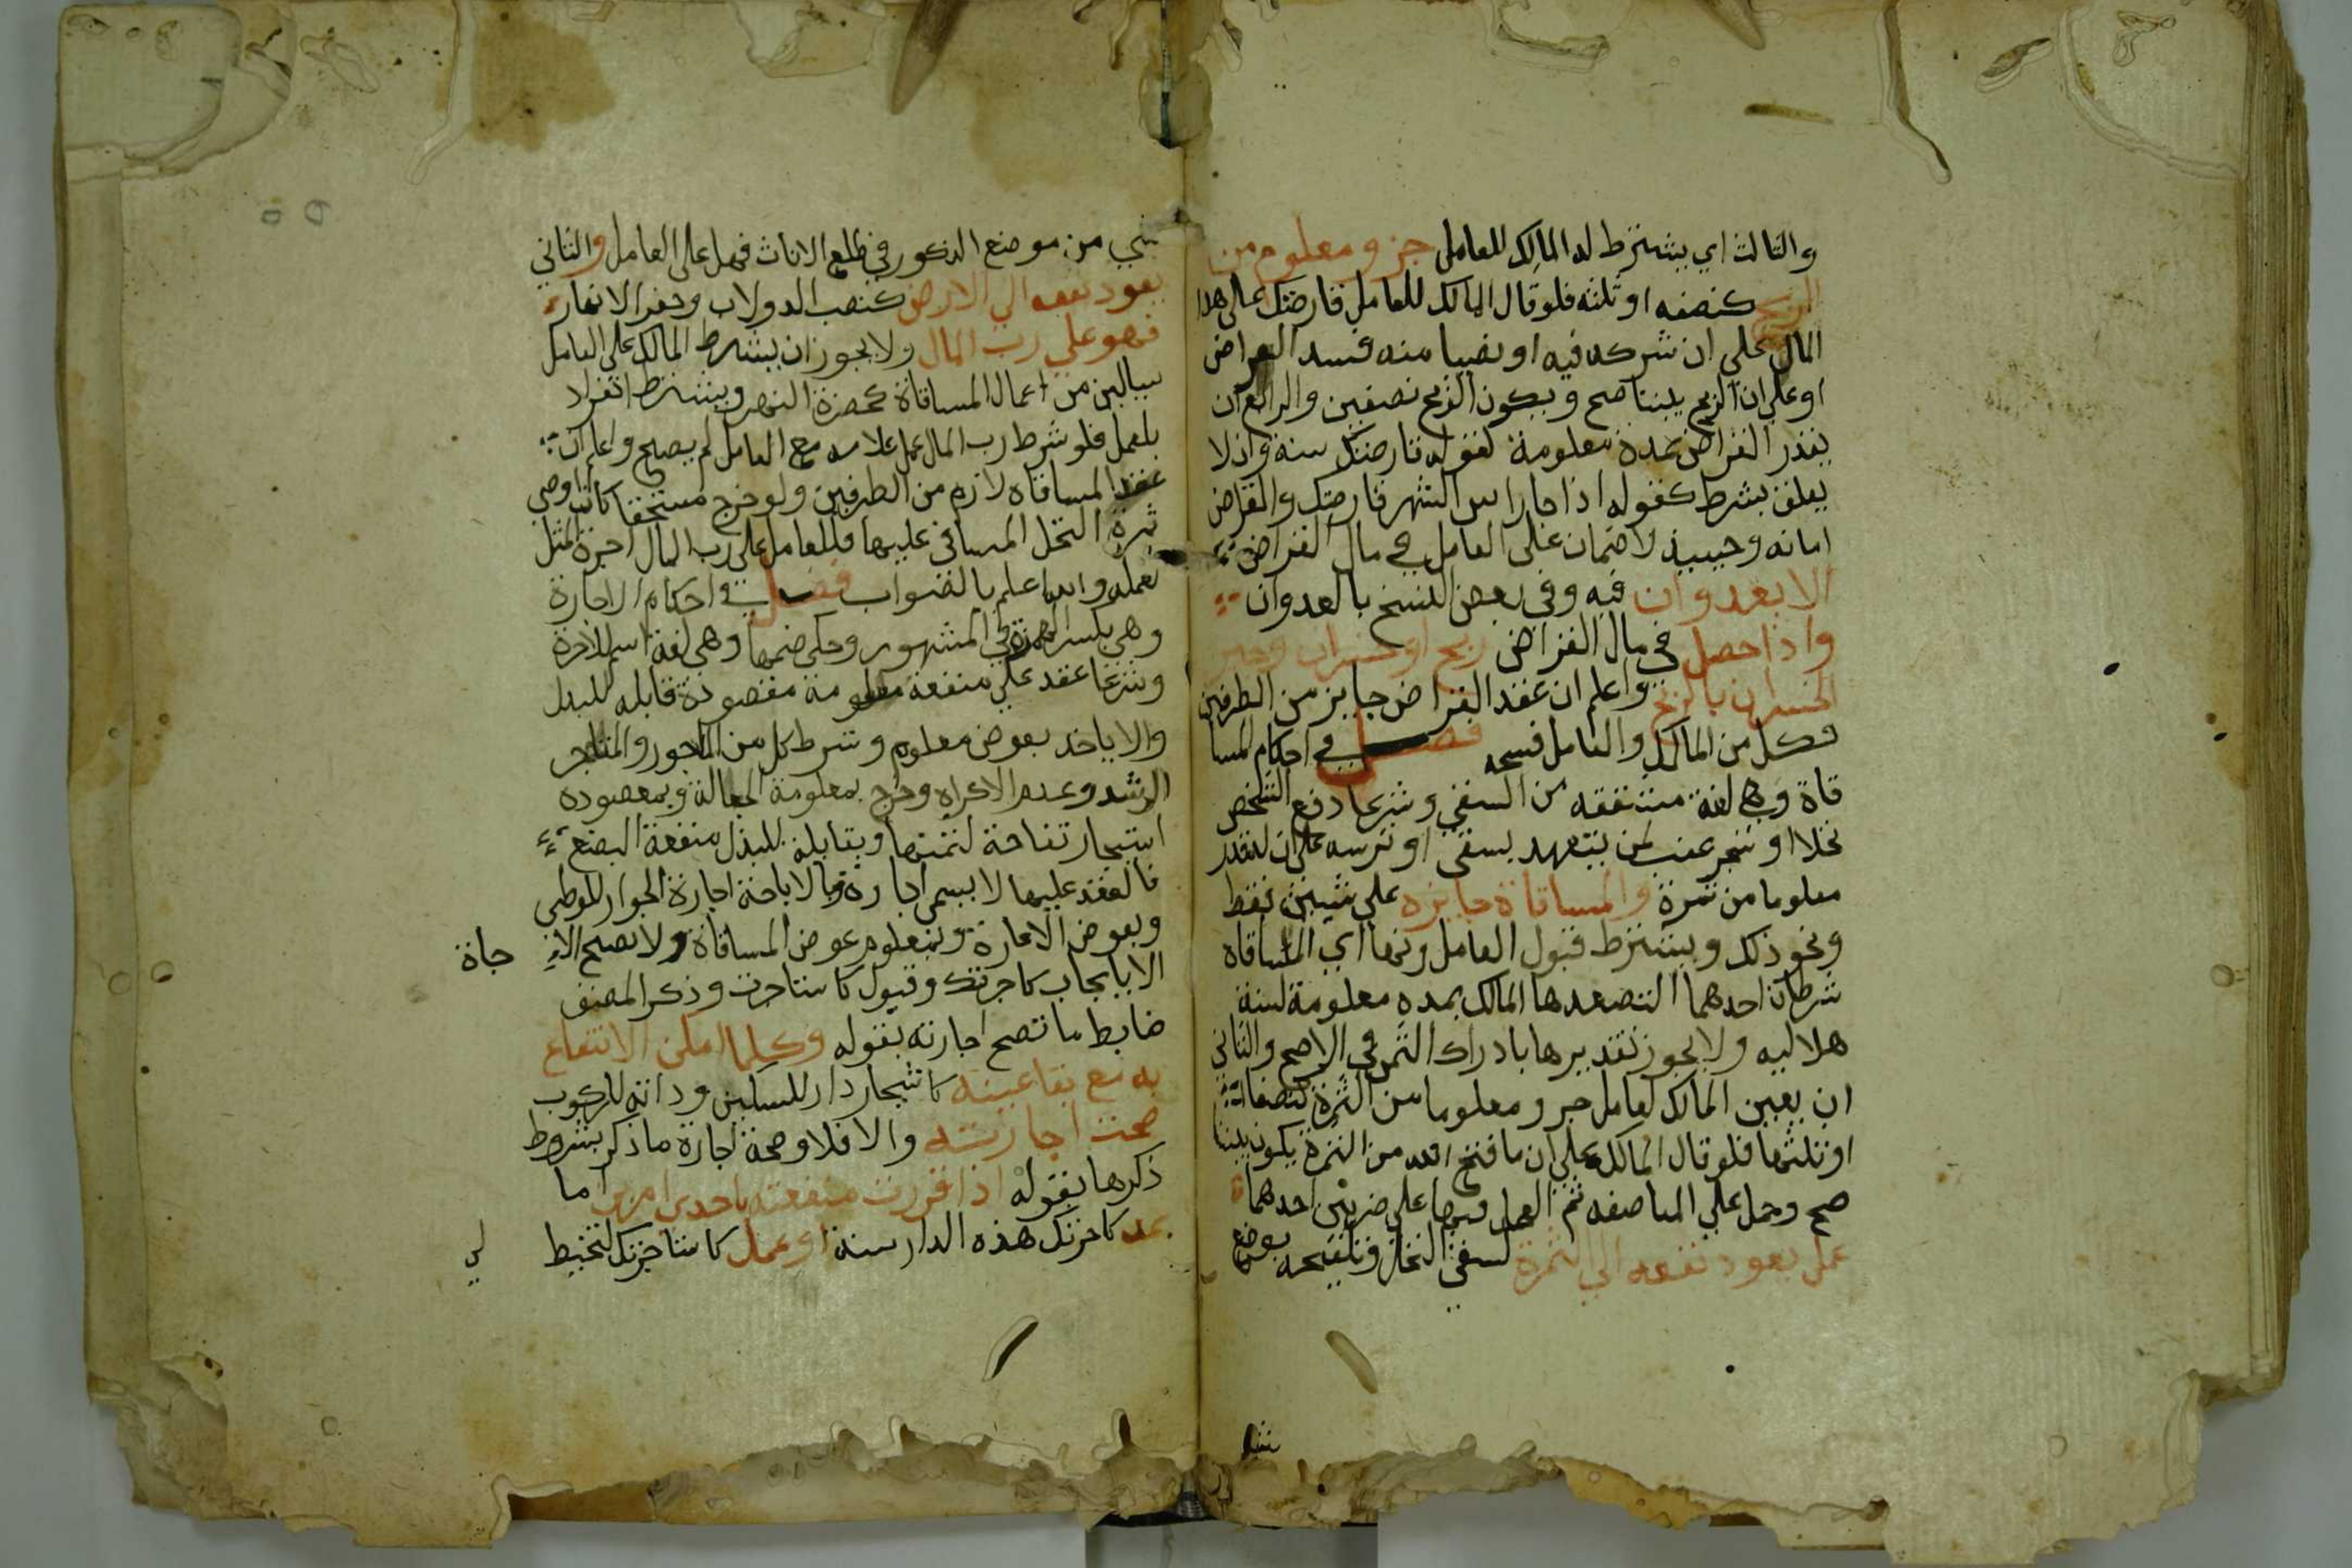 والثالث اي يشترط له المالك للعامل جزو معلوم من
الربح كنصفه او ثلثه فلو قال المالك للعامل قارضتك على هذا
المال على ان شركه فيه او نصيبا منه فسد القراض
او على ان الربح بيننا صح ويكون الربح نصفين والرابع ان
يقدر القراض بمدة معلومة لقوله قارضتك سنة وان لا
يعلق بشرط كقوله اذا جا راس الشهر قارضتك والقراض
امانه وحينيذ لا ضمان على العامل في مال القراض
الا بعدوان فيه وفي بعض النسخ بالعدوان
واذا حصل في مال القراض ربح او خسران وجبر
الخسران بالربح واعلم ان عقد القراض جايز من الطرفين
فكل من المالك والعامل فسخه فصل في احكام المسا
قاة وهي لغة مشتقة من السقي وشرعا دفع الشخص
نخلا او شجر عنب لمن يتعهد بسقي او ترسه على ان له قدر
معلوما من ثمرة والمساقاة جايزه على شيين فقط
ونحو ذلك ويشترط قبول العامل ولها اي المساقاه
شرطان احدهما ان يقدرها المالك بمده معلومة لسنة
هلاليه ولا يجوز تقديرها بادراك الثمر في الاصح والثاني
ان يعين المالك لعامل جزو معلوما من الثمرة كنصفها
او ثلثها فلو قال المالك على ان ما فتح الله من الثمرة يكون بيننا
صح وحمل على المناصفه ثم العمل فيها على ضربين احدهما
عمل يعود نفعه الى الثمرة لسقي النخل وتلقيحه بوضع
شي
شي من موضع الذكور في طلع الاناث فهل على العامل والثاني
يعود نفعه الى الارض كنصب الدولاب وحفر الانهار
فهو على رب المال ولا يجوز ان يشترط المالك على العامل
شيا ليس من اعمال المساقاة كحفرة النهر ويشترط انفراد
بلعمل فلو شرط رب المال عمل غلامه مع العامل لم يصح واعلم ان
عقد المساقاه لازم من الطرفين ولو خرج مستحقا كان اوصى
ثمرة النخل المساقى عليها فللعامل على رب المال اجرة المثل
لعمله والله اعلم بالصواب فصل في احكام الاجارة
وهي بكسر الهمزة في المشهور وحكي ضمها وهي لغة اسم للاجرة
وشرعا عقد على منفعة معلومة مقصودة قابله للبدل
والاباحة بعوض معلوم وشرط كل من الماجور والمتاجر
الرشد وعدم الاكراه وخرج بمعلومة الجعالة وبمقصوده
استيجار تفاحة لشمها وبقابلة للبذل منفعة البضع
فالعقد عليها لا يسمى اجارة وبالاباحة اجارة الجوار للوطي
وبعوض الاعارة وبمعلوم عوض المساقاة ولا تصح الا
جاة
الا بايجاب كاجرتك وقبول كاستاجرت وذكر المصنف
ضابط ما تصح اجارته بقوله وكلما امكن الانتفاع
به مع بقا عينه كاستيجار دار للسكني ودابة للركوب
صحت اجارته والا فلا وصحة اجارة ما ذكر بشروط
ذكرها بقوله اذا قدرت منفعته باحدى امرين اما
بمد كاجرتك هذه الدار سنة او عمل كاستاجرتك لتخيط
لي